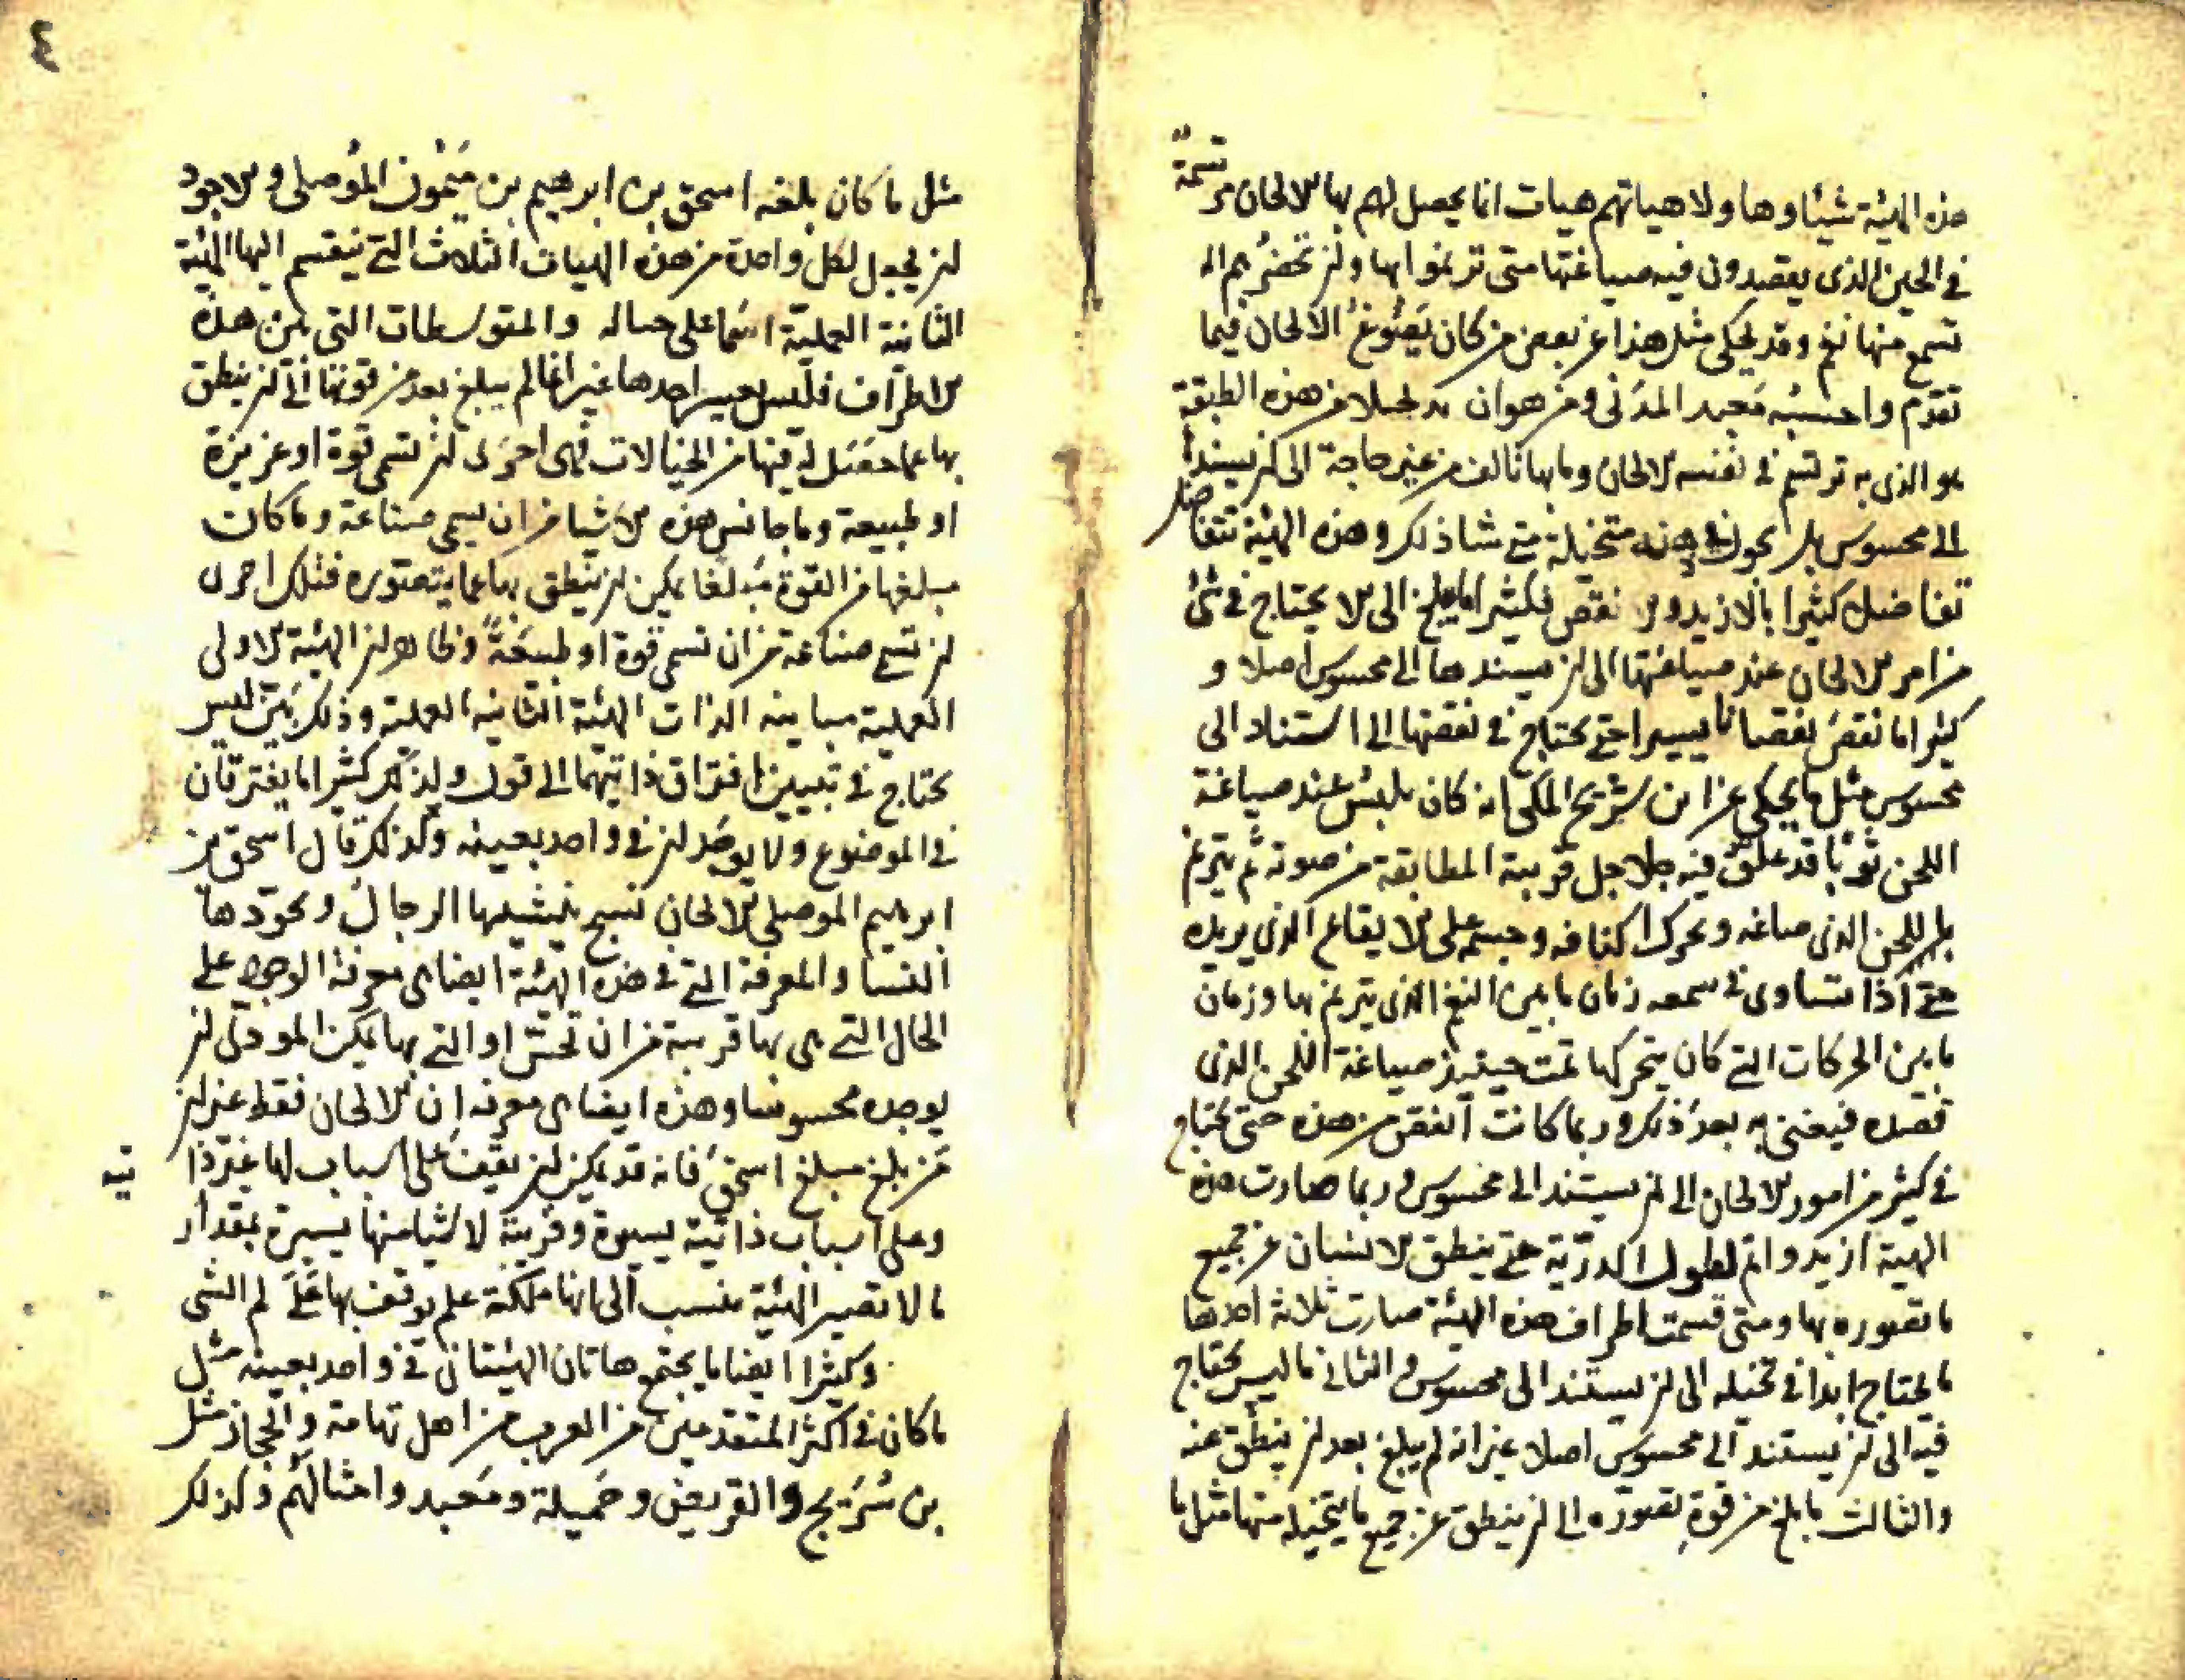 هذه الهيئة شيئا وها ولا هياتهم هيات انما يحصل لهم بها الالحان مرتسمة
في الحين الذي يقصدون فيه صياغتها متى ترنموا بها ولن تحضرهم الة
تسمع منها نغم وقد يحكى مثل هذا عن بعض من كان يصوغ الالحان فيما
تقدم واحسبه معبد المدني ومن هو ان من هذه الطبقة
هو الذي به ترتسم في نفسه الالحان وما بها تالف من غير حاجة الى ان يسندها
الى محسوس بل متخيلة متى شا ذلك وهذه الهيئة تتفاضل
تفاضلا كثيرا بالازيد والانقص فكثيرا ما يبلغ الى الا يحتاج في شئ
من امر الالحان عند صياغتها الى ان يسندها الى محسوس اصلا و
كثيرا ما نقص نقصانا يسيرا حتى يحتاج في نقصها الى استناد الى
محسوس مثل ما يحكى عن ابن سريج المكي انه كان يلبس عند صياغة
اللحن ثوبا قد علق فيه جلاجل قريبة المطابقة من صوته ثم يترنم
باللحن الذي صاغه ويحرك اكتافه وجسمه على الايقاع الذي يريده
حتى اذا تساوى في سمعه زمان ما بين النغم الذي يترنم بها وزمان
ما بين الحركات التي كان يتحركها تمت حينئذ صياغة اللحن الذي
قصده فيغنى به بعد ذلك وربما كانت انقص من هذه حتى يحتاج
في كثير من امور الالحان الى ان يستند الى محسوس وربما صارت هذه
الهيئة ازيد واتم لطول الدربة حتى ينطق الانسان عن جميع
ما تصوره بها ومتى قسمت اطراف هذه الهيئة صارت ثلاثة احدها
ما يحتاج ابدا في تخيله الى ان يستند الى محسوس والثاني ما ليس يحتاج
فيه الى ان يستند الى محسوس اصلا غير انه لم يبلغ بعد ان ينطق عنه
والثالث ما بلغ من قوة تصوره الى ان ينطق عن جميع ما يتخيله منها مثل ما
٤
مثل ما كان بلغه اسحق بن ابرهيم بن ميمون الموصلي والاجود
ان يجعل لكل واحدة من هذه الهيات الثلاث التي ينقسم اليها الهيئة
الثانية العملية اسما على حياله والمتوسطات التي بين هذه
الاطراف فليس يعسر اخذها غير انها لم يبلغ بعد من قوتها الى ان ينطق
بها عما حصل له فيها من الخيالات فهي احرى ان تسمى قوة او غريزة
او طبيعة وما جانس هذه الاشيا من ان يسمى صناعة وما كان
مبلغها من القوة مبلغا يمكن ان ينطق بها عما يتصوره فتلك احرى
ان تسمى صناعة من ان تسمى قوة او طبيعة وظاهر ان الهيئة الاولى
العملية مباينة الذات الهيئة الثانية العملية وذلك بين ليس
يحتاج في تبيين افتراق ذاتيهما الى قول ولذلك كثيرا ما يفترقان
في الموضوع ولا يوجد ان في واحد بعينه وكذلك قال اسحق بن
ابرهيم الموصلي الالحان نسج ينسجها الرجال ويجودها
النسا والمعرفة التي في هذه الهيئة ايضا هي معرفة الوجود على
الحال التي هي بها قريبة من ان تحس او التي بها يمكن المودي ان
يوجده محسوسا وهذه ايضا هي معرفة ان الالحان فقط غير ان
من بلغ مبلغ اسحق فانه قد يمكن ان يقف على اسباب لها غير ذا
تية
وعلى اسباب ذاتية يسيرة وقريبة لاشيا منها يسيرة بمقدار
ما لا تصير الهيئة تنسب الى انها ملكة علم يوقف بها على لم الشى
وكثيرا ايضا ما يجتمع هاتان الهيئتان في واحد بعينه مثل
ما كان في اكثر المتقدمين من العرب من اهل تهامة والحجاز مثل
بن سريج والغريض وجميلة ومعبد وامثالهم وكذلك